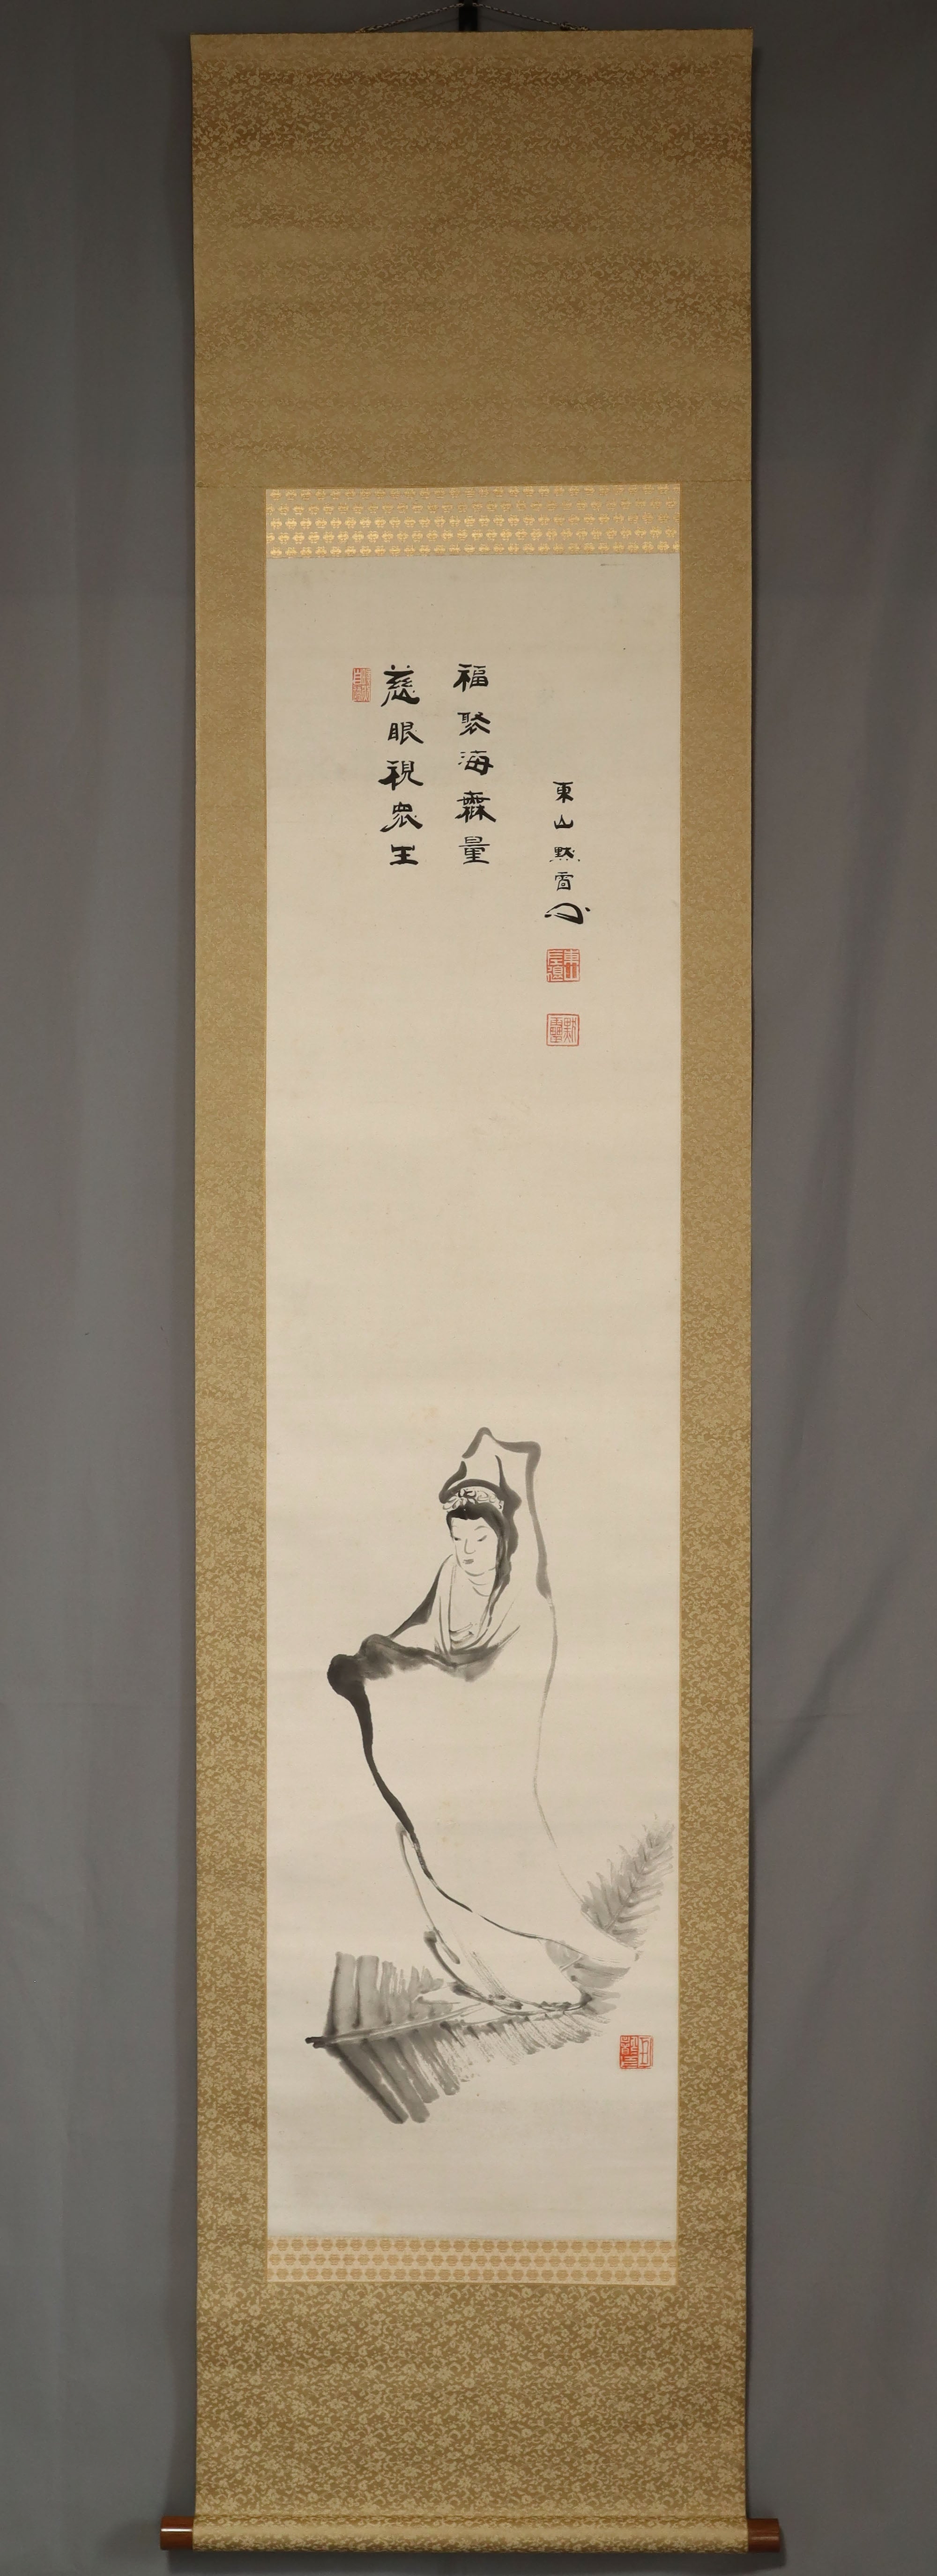 慈眼視衆生
福聚海無量
東山默雷
默雷